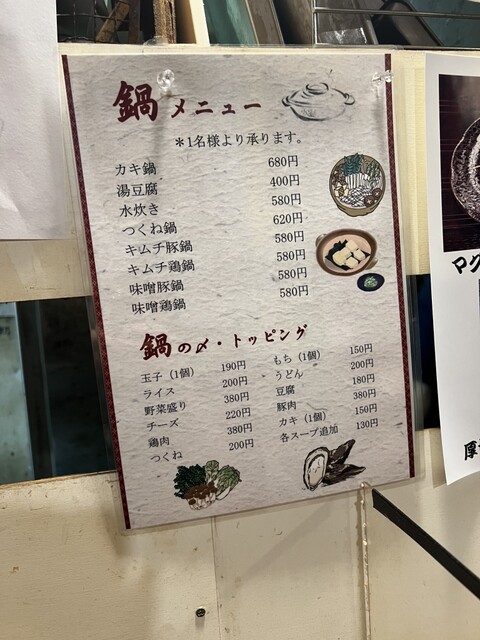 鍋 メニュー
＊1名様より承ります。
カキ鍋 680円
湯豆腐 400円
水炊き 580円
つくね鍋 620円
キムチ豚鍋 580円
キムチ鶏鍋 580円
味噌豚鍋 580円
味噌鶏鍋 580円
鍋の〆・トッピング
玉子（1個） 190円
ライス 200円
野菜盛り 380円
チーズ 220円
鶏肉 380円
つくね 200円
もち（1個） 150円
うどん 200円
豆腐 180円
豚肉 380円
カキ（1個） 150円
各スープ追加 130円
マグ
厚